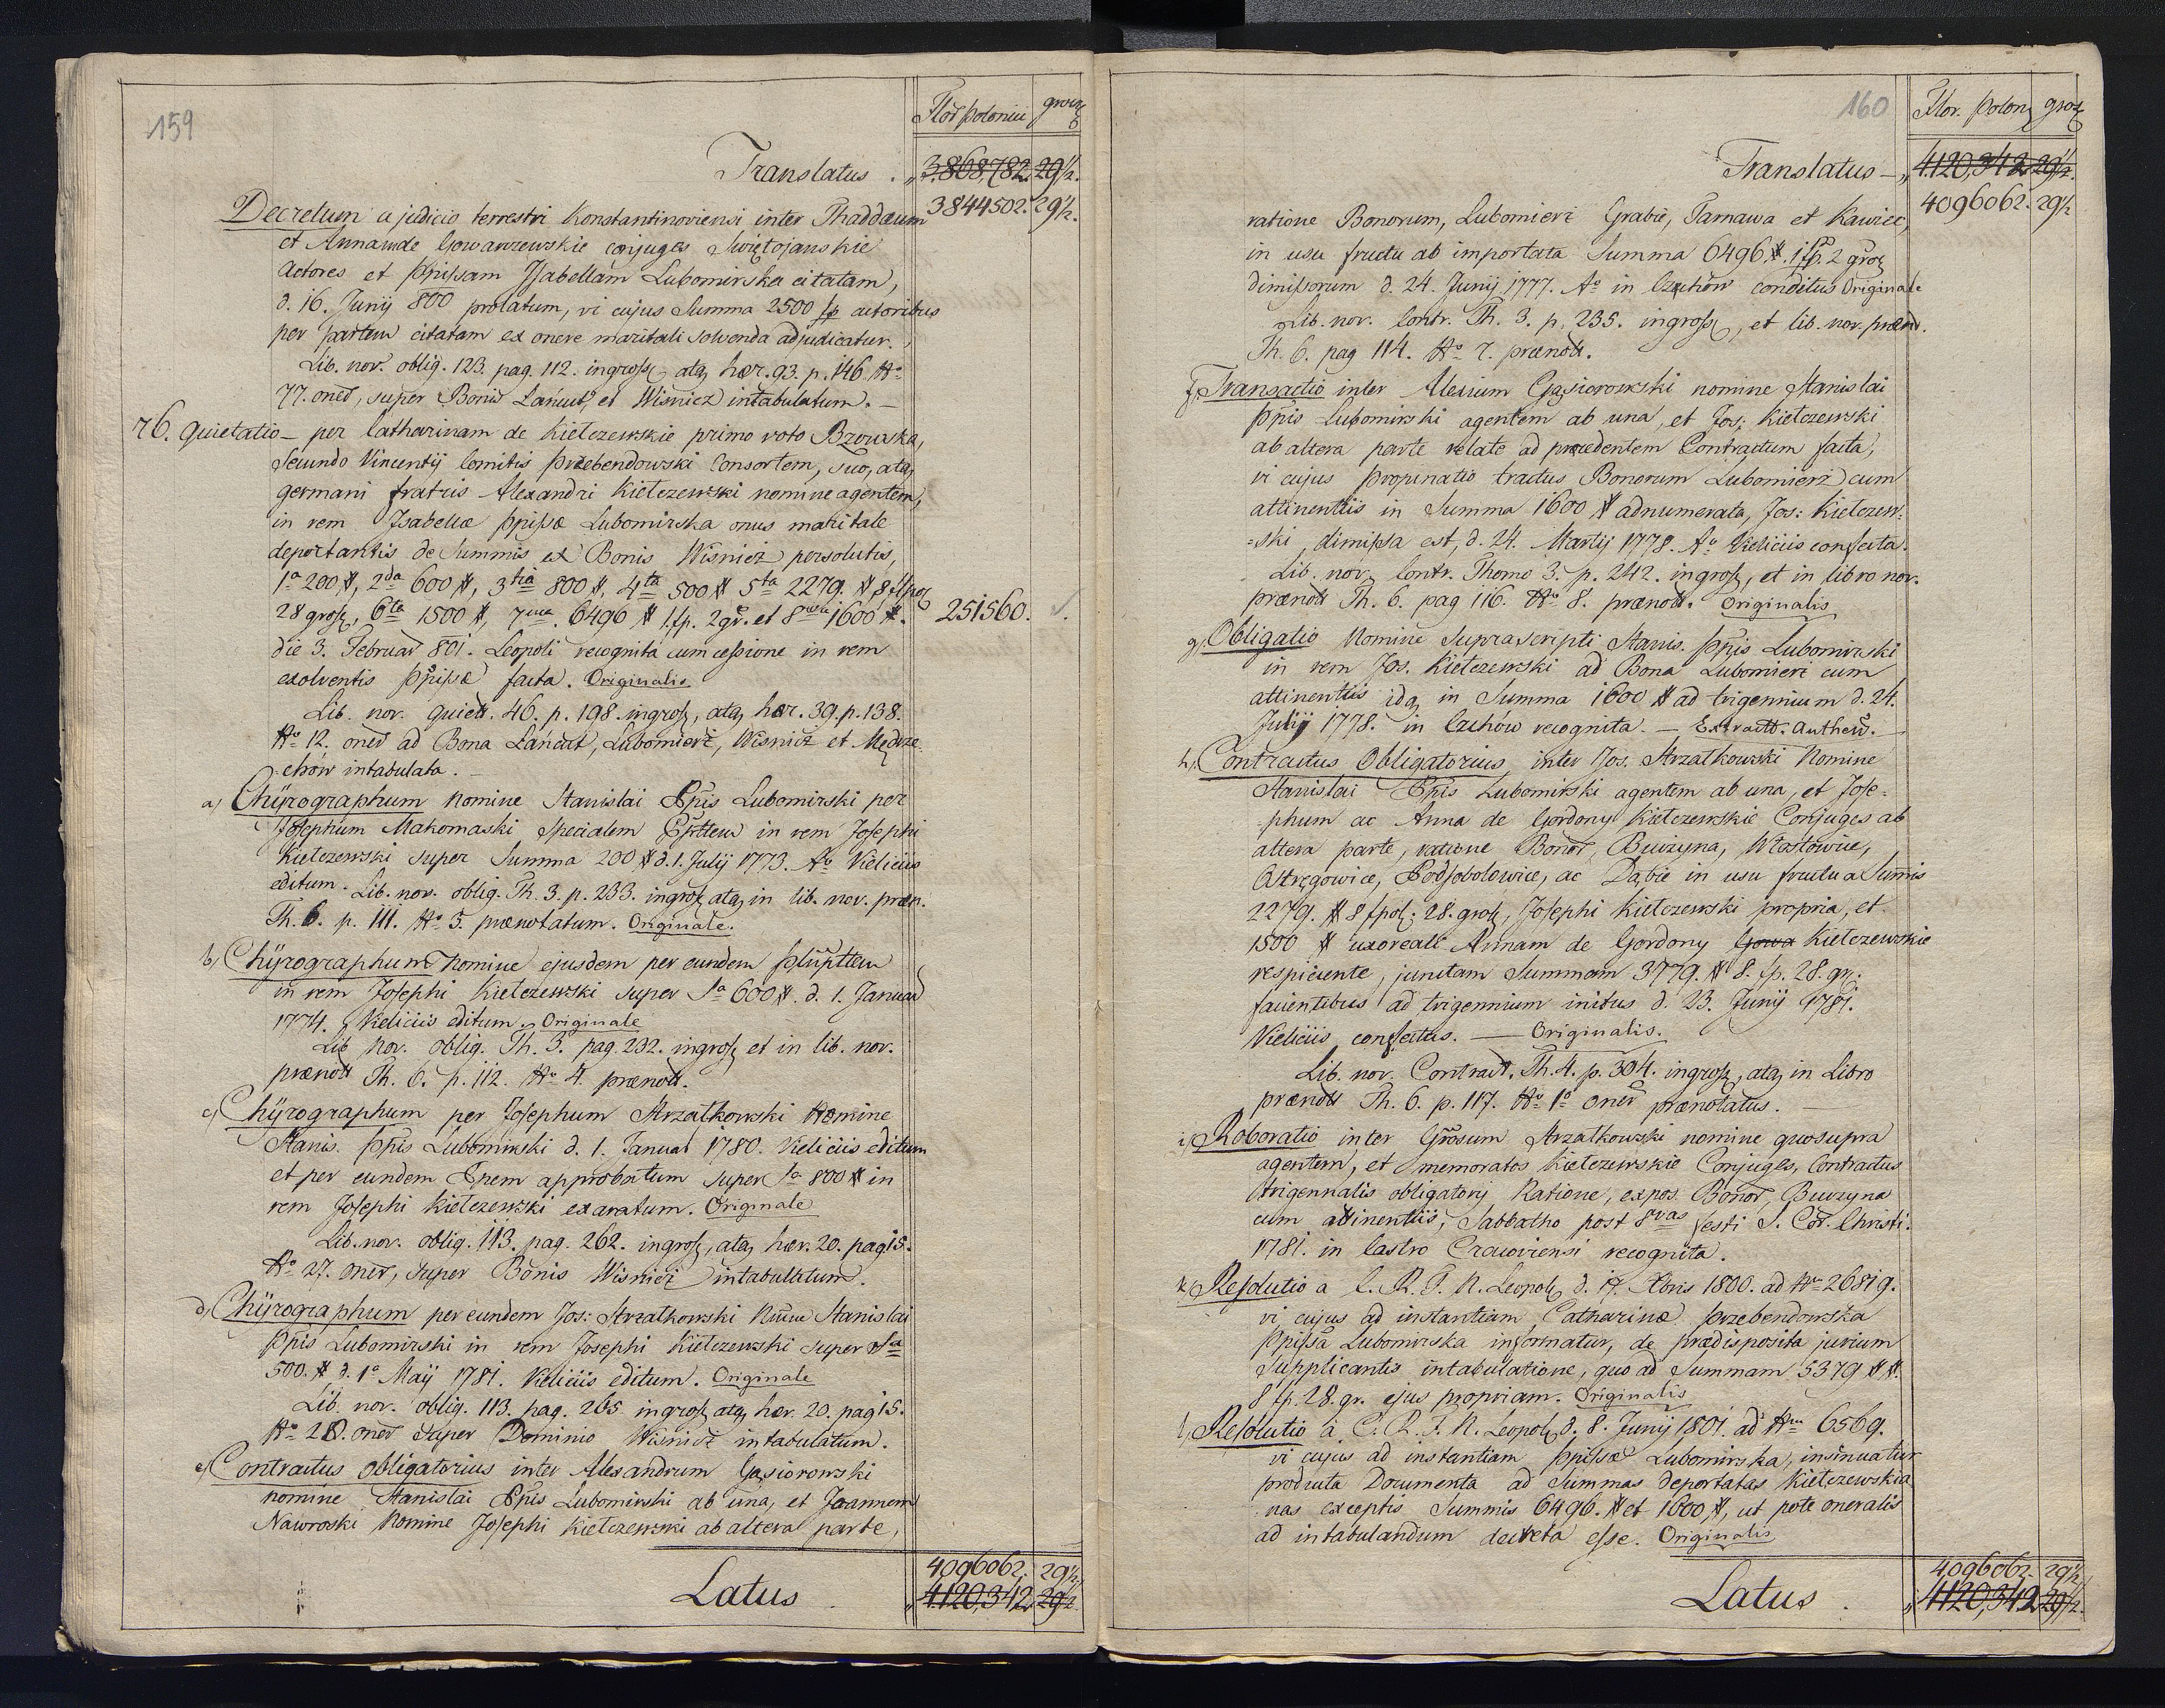 159
Flor Polonici groz
Translatus . „ 3.868,782. 29½.
3844502. 29½.
Decretum a judicio terrestri Konstantinoviensi inter Thaddæum
et Annam de Gowarzewskie conjuges Swiętojanskie
Actores et Ppissam Isabellam Lubomirska citatam,
d. 16. Junij 800 prolatum, vi cujus Summa 2500 fp actoribus
per partem citatam ex onere maritali solvenda adjudicatur.
Lib. nov. oblig. 123. pag. 112. ingross, atq hær. 93. p. 146. No
77. oner, super Bonis Lancut, et Wisnicz intabulatum. —
76. Quietatio – per Catharinam de Kielczewskie primo voto Bzowska,
secundo Vincentij Comitis Przebendowski Consortem, suo, atq
germani fratris Alexandri Kielczewski nomine agentem,
in rem Isabellæ Ppissæ Lubomirska onus maritale
deportantis de Summis ex Bonis Wisnicz persolutis,
1a 200 #, 2da 600 #, 3tia 800 #, 4ta 500 # 5ta 2279. # 8 flpol
28 gross, 6ta 1500 #, 7ma 6496 # 1 fp. 2 gr. et 8va 1600 #. 251560.
die 3. Februar 801. Leopoli recognita cum cessione in rem
exolventis Ppissæ facta. Originalis
Lib. nov. quiett. 46. p. 198. ingross, atq hær. 39. p. 138.
No 12. oner ad Bona Lancut, Lubomierz, Wisnicz et Mędrze
chow intabulata. —
a) Chÿrographum Nomine Stanislai Ppis Lubomirski per
Josephum Makomaski specialem Pptten in rem Josephi
Kielczewski super Summa 200 # d. 1. Julij 1773. Ao Vieliciis
editum. Lib. nov. oblig. Th. 3. p. 233. ingross atq in lib. nov. præn.
Th. 6. p. 111. No 3. prænotatum. Originale.
b) Chÿrographum Nomine ejusdem per eundem plnpttem
in rem Josephi Kielczewski super Sa 600 #. d. 1. Januar
1774. Vieliciis editum. Originale
Lib. Nov. oblig. Th. 3. pag. 232. ingross et in lib. nov.
prænott Th. 6. p. 112. No 4. prænott.
c) Chÿrographum per Josephum Strzalkowski Nomine
Stanis. Ppis Lubomirski d. 1. Januar 1780. Vieliciis editum
et per eundem Ppem approbatum super Sa 800 # in
rem Josephi Kielczewski exaratum. Originale
Lib. nov. oblig. 113. pag. 262. ingross, atq hær. 20. pag 15.
No 27. oner, super Bonis Wisnicz intabulatum.
d) Chÿrographum per eundem Jos: Strzalkowski Nnne Stanislai
Ppis Lubomirski in rem Josephi Kielczewski super Sa
500. # d. 1a Maij 1781. Vieliciis editum. Originale
Lib. nov. oblig. 113. pag. 265 ingross, atq hær. 20. pag 15.
No 28. oner super Dominio Wisnicz intabulatum.
e) Contractus obligatorius inter Alexandrum Gąsiorowski
nomine Stanislai Ppis Lubomirski ab una, et Joannem
Nawroski Nomine Josephi Kielczewski ab altera parte,
4096062. 29½.
Latus . „ 4.120,342. 29½
160
Flor. Polon groz
Translatus – „ 4.120,342. 29½.
4096062. 29½
ratione Bonorum, Lubomierz Grabie, Tarnawa et Kawiec,
in usu fructu ab importata Summa 6496 #. 1 fp. 2 groz
dimissorum d. 24. Junij 1777. Ao in Czuchow conditus Originale
Lib. nov. Contr. Th. 3. p. 235. ingross, et lib. nov. prænd.
Th. 6. pag 114. No 7. prænott.
f) Transactio inter Alexium Gąsiorowski nomine Stanislai
Ppis Lubomirski agentem ab una, et Jos: Kielczewski
ab altera parte relate ad præcedentem Contractum facta,
vi cujus Propinatio tractus Bonorum Lubomierz cum
attinentiis in Summa 1600 # adnumerata, Jos: Kielczew:
=ski dimissa est, d. 24. Martij 1778. Ao Vieliciis confecta.
Lib. nov. Contr. Thomo 3. p. 242. ingross, et in libro nov.
prænott Th. 6. pag 116. No 8. prænott. Originalis
g) Obligatio Nomine suprascripti Stanis. Ppis Lubomirski
in rem Jos. Kielczewski ad Bona Lubomierz cum
attinentiis idq in Summa 1600 # ad trigennium d. 24.
Julij 1778. in Czchów recognita. — Extractt. Authen.
h) Contractus Obligatorius inter Jos. Strzalkowski Nomine
Stanislai Ppis Lubomirski agentem ab una, et Jose-
phum ac Anna de Gordony Kielczewskie Conjuges ab
altera parte, ratione Bonor, Buczyna, Wlastowice,
Ostręgowice, Podsobolowice, ac Dąbie in usu fructu a Summis
2279. # 8 fpol: 28. gross, Josephi Kielczewski propria, et
1500 # uxoreali Annam de Gordony Gowa Kielczewskie
respiciente, junctam Summam 3779. # 8. fp. 28. gr.
facientibus ad trigennium initus d. 23. Junij 1781.
Vieliciis confectus. — Originalis.
Lib. nov. Contractt. Th. 4. p. 304. ingross, atq in Libro
prænott Th. 6. p. 117. No 1o oner prænotatus. —
i) Roboratio inter Grosum Strzalkowski nomine quo supra
agentem, et memoratos Kielczewskie Conjuges, Contractus
trigennalis obligatorij Ratione, expos. Bonor, Buczyna
cum attinentiis, Sabbatho post 8vas festi S. Cor. Christi.
1781. in Castro Cracoviensi recognita.
k) Resolutio a C. R. F. N. Leopol d. 17. Xbris 1800. ad Num 26819.
vi cujus ad instantiam Catharinæ Przebendowska
Ppissa Lubomirska informatur, de prædisposita jurium
Supplicantis intabulatione, quo ad Summam 5379 ##.
8 fp. 28. gr. ejus propriam. Originalis
l) Resolutio à C. R. F. N. Leopol d. 8. Junij 1801. ad Num 6569.
vi cujus ad instantiam Ppissæ Lubomirska, insinuatur
producta Documenta ad Summas deportatas Kielczewskia
nas exceptis Summis 6496. # et 1600 #, ut pote oneralis
ad intabulandum decreta esse. Originalis
4096062. 29½
Latus . „ 4120,342 29½.